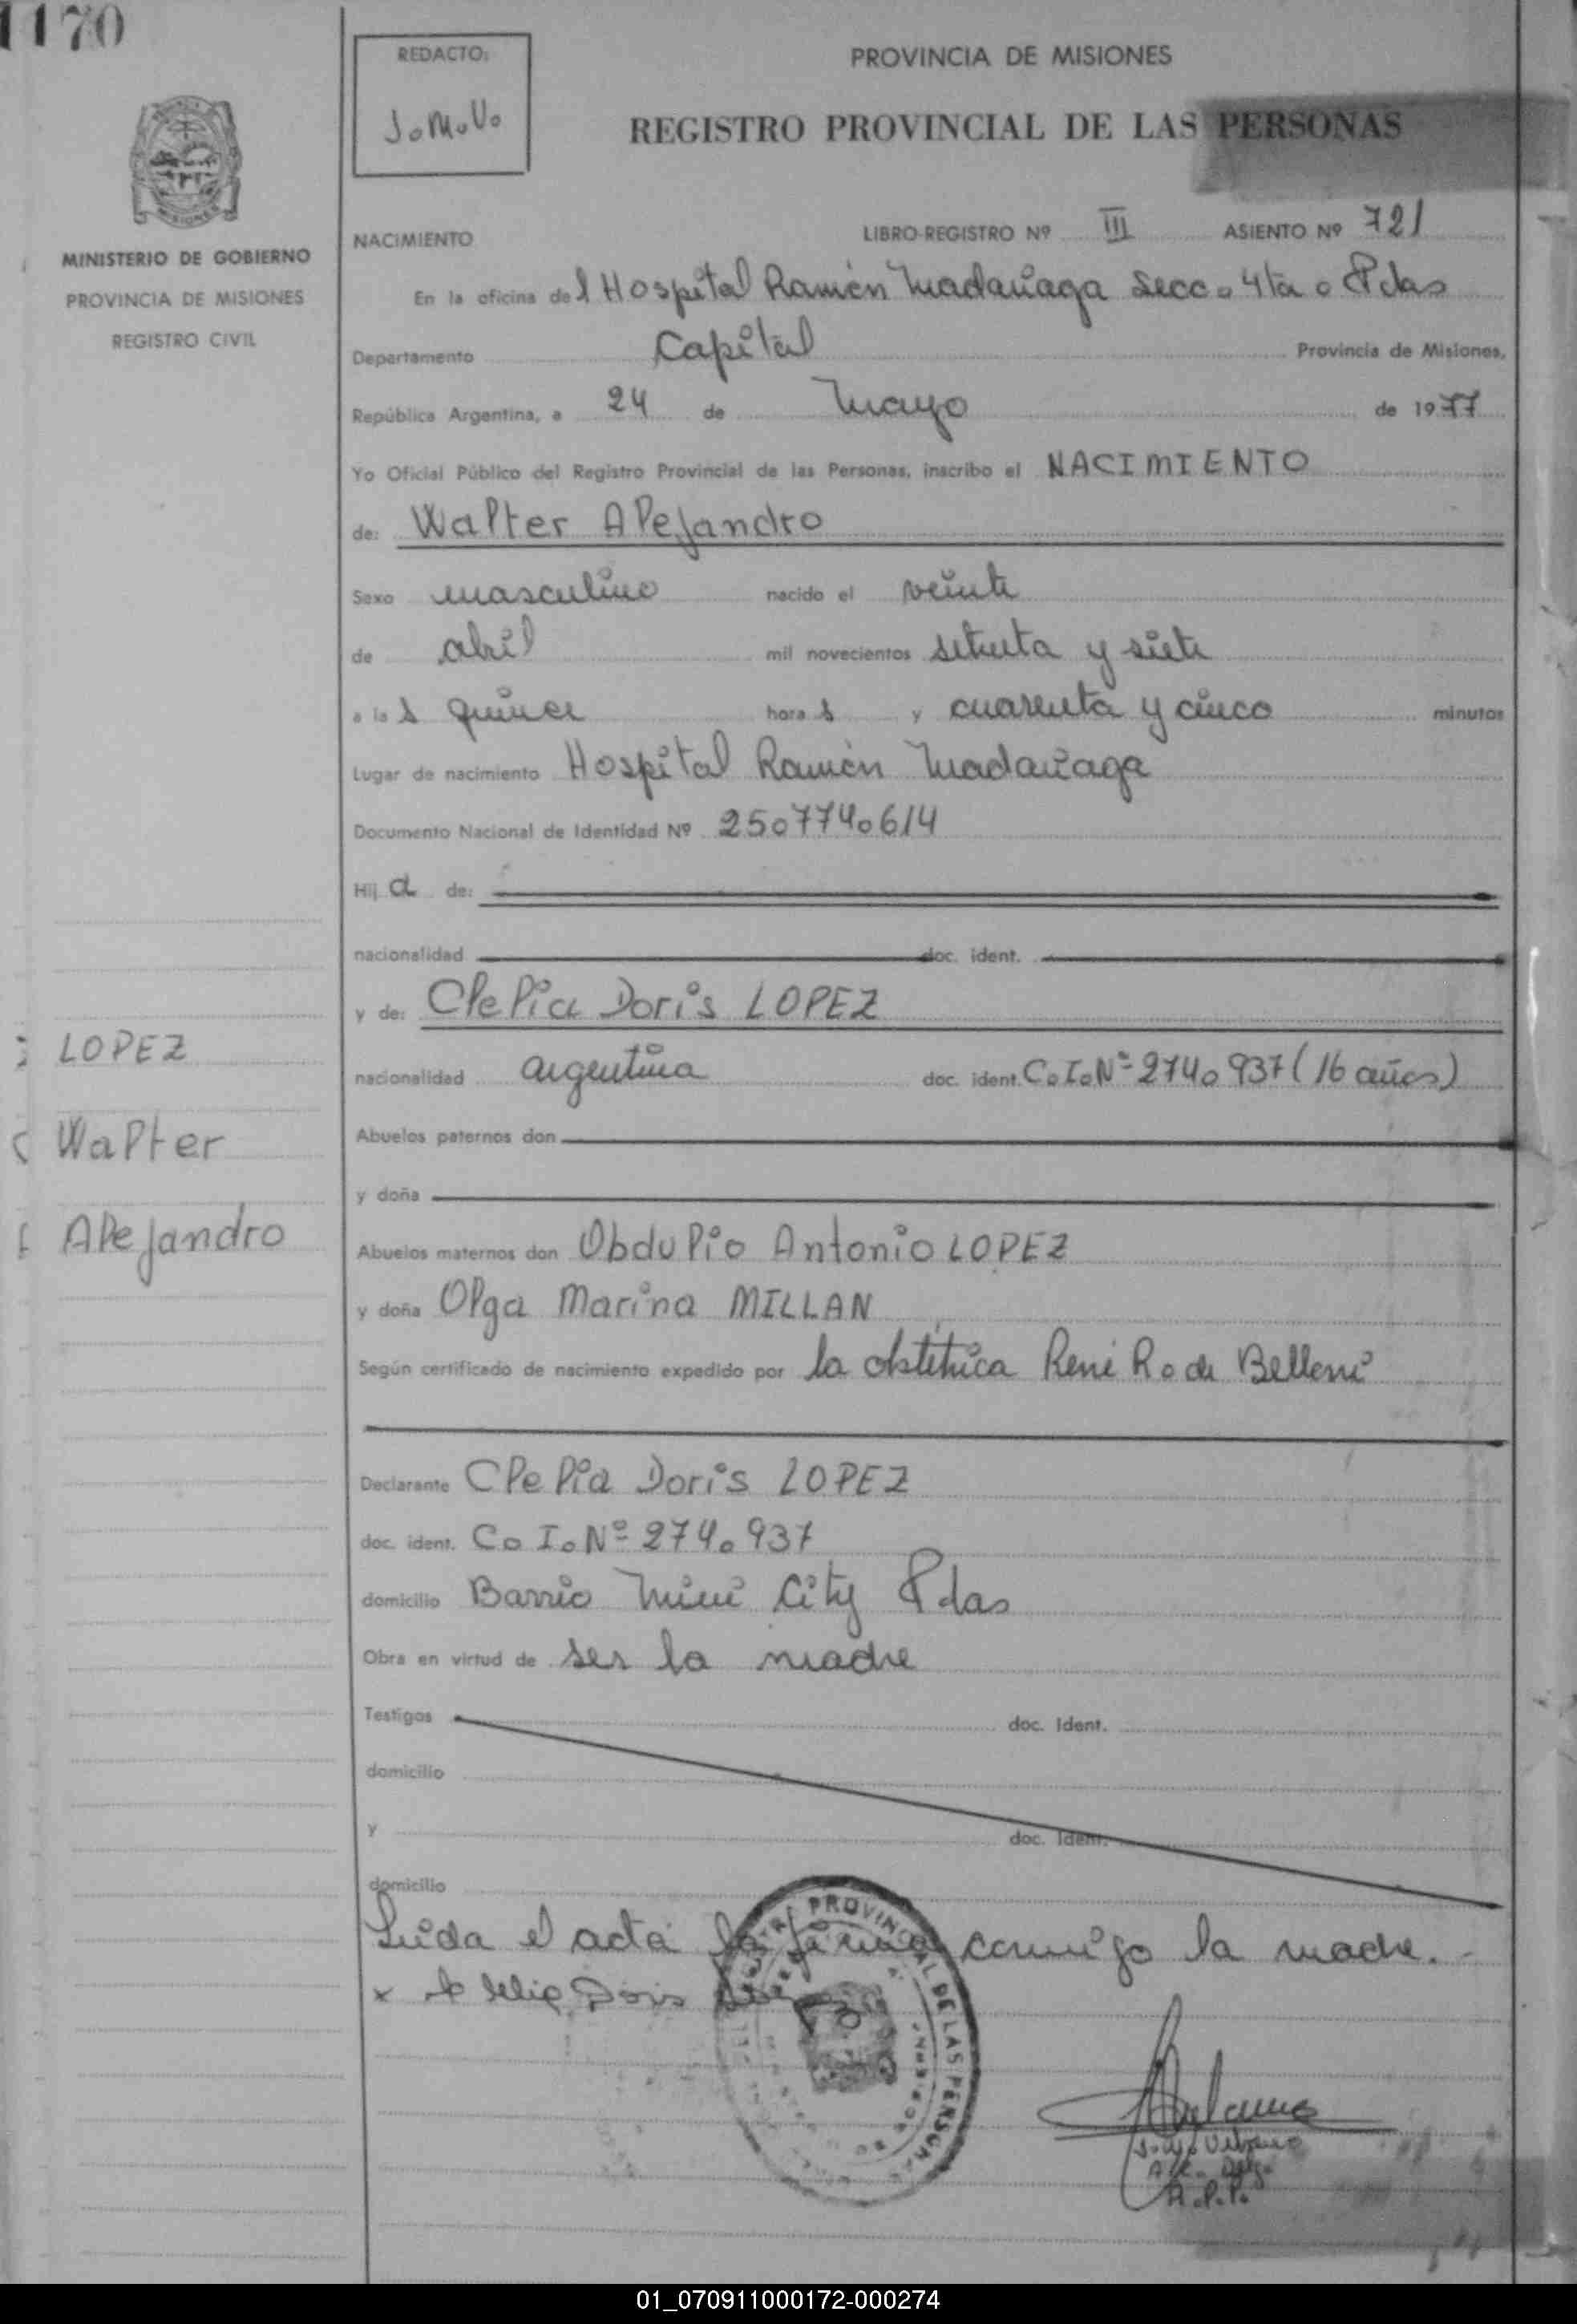 1170
REDACTO:
J.M.V.
PROVINCIA DE MISIONES
REGISTRO PROVINCIAL DE LAS PERSONAS
MISIONES
MINISTERIO DE GOBIERNO
PROVINCIA DE MISIONES
REGISTRO CIVIL
NACIMIENTO LIBRO-REGISTRO Nº III ASIENTO Nº 721
En la oficina del Hospital Ramón Madariaga Secc. 4ta. Pdas
Departamento Capital Provincia de Misiones,
República Argentina, a 24 de Mayo de 1977
Yo Oficial Público del Registro Provincial de las Personas, inscribo el NACIMIENTO
de: Walter Alejandro
Sexo masculino nacido el veinte
de abril mil novecientos setenta y siete
a las quince horas y cuarenta y cinco minutos
Lugar de nacimiento Hospital Ramón Madariaga
Documento Nacional de Identidad Nº 25.774.614
Hij a de:
nacionalidad doc. ident.
y de: Clelia Doris LOPEZ
nacionalidad argentina doc. ident. C.I.Nº 274.937 (16 años)
Abuelos paternos don
y doña
LOPEZ
Walter
Alejandro
Abuelos maternos don Obdulio Antonio LOPEZ
y doña Olga Marina MILLAN
Según certificado de nacimiento expedido por la obstétrica René R. de Belloni
Declarante Clelia Doris LOPEZ
doc. ident. C.I.Nº 274.937
domicilio Barrio Mini City Pdas
Obra en virtud de ser la madre
Testigos doc. Ident.
domicilio
y doc. Ident.
domicilio
Leida el acta la firma conmigo la madre.-
x Clelia Doris
PROVINCIAL DE LAS PERSONAS
R.P.P.
01_070911000172-000274